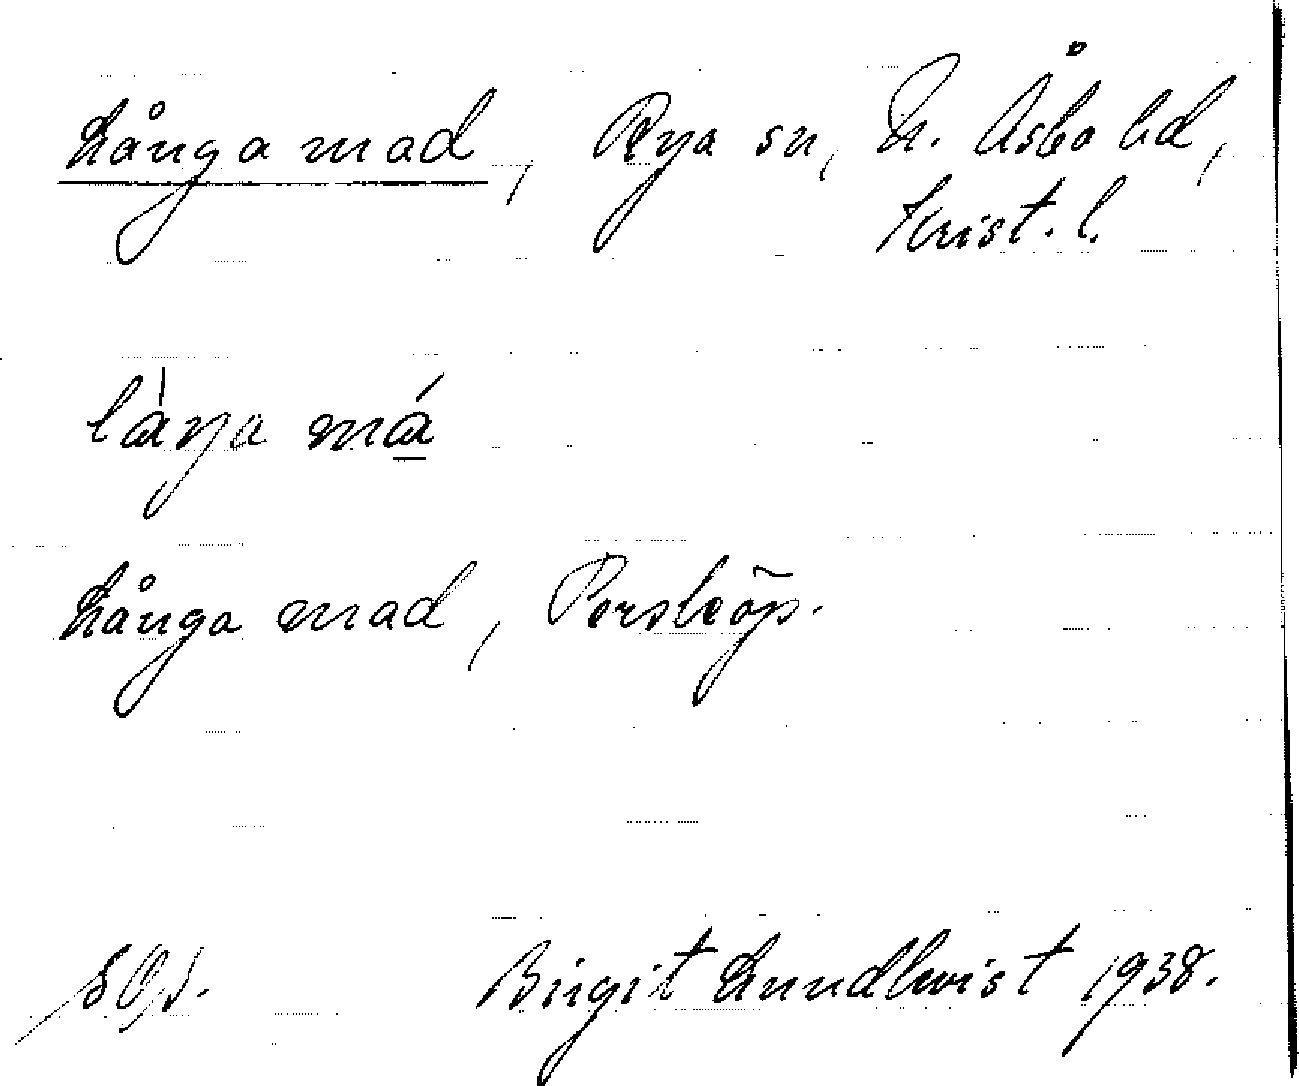 Långa mad, Rya sn, N. Åsbo hd,
Krist. l.
låŋa má
Långa mad, Perstorp.
Birgit Lundkvist 1938.